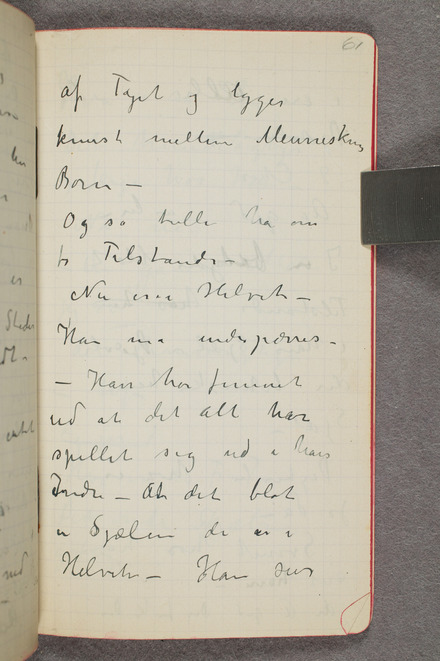 61
af Taget og lægges
kunst mellem Menneskens
Born —
Og så talte ha om
to Tilstande —
Nu er i Helvete —
Han må undersøges —
— Han har funnet
ud at det alt har
spillet sig ud i hans
Indre — At det blot
er Sjælen der er i
Helvete — Han sees